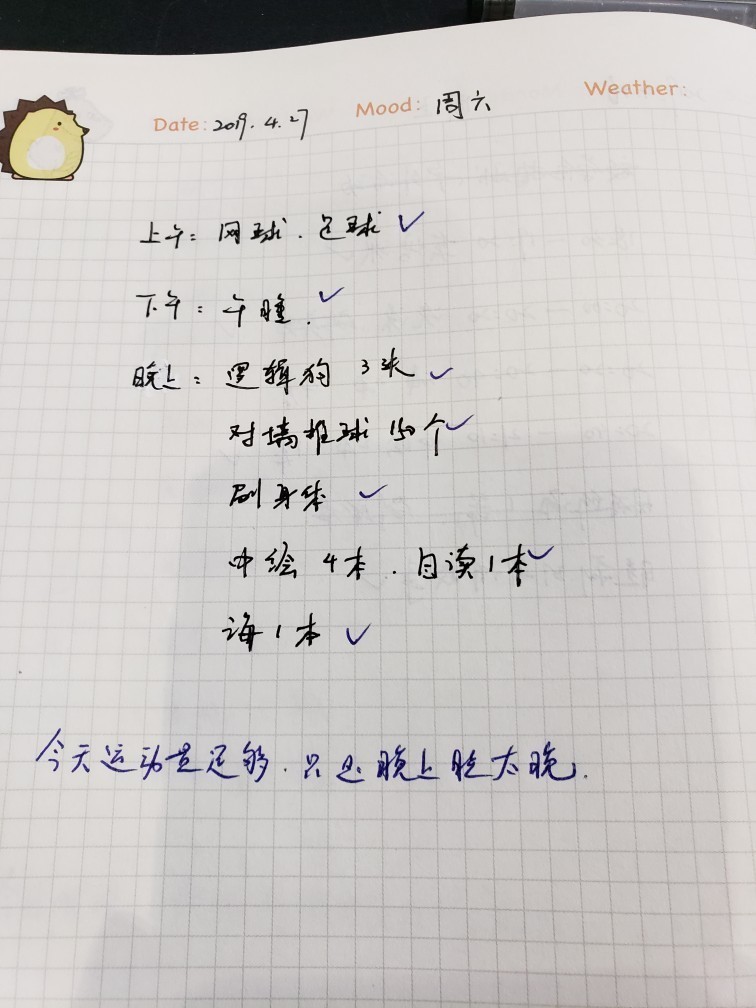 Date: 2019.4.27 Mood: 周六 Weather:
上午: 网球. 足球 ✓
下午: 午睡. ✓
晚上: 逻辑狗 3张 ✓
对墙推球 150个 ✓
刷身体 ✓
中绘 4本. 自读1本 ✓
海1本 ✓
今天运动量足够. 只是晚上睡太晚.